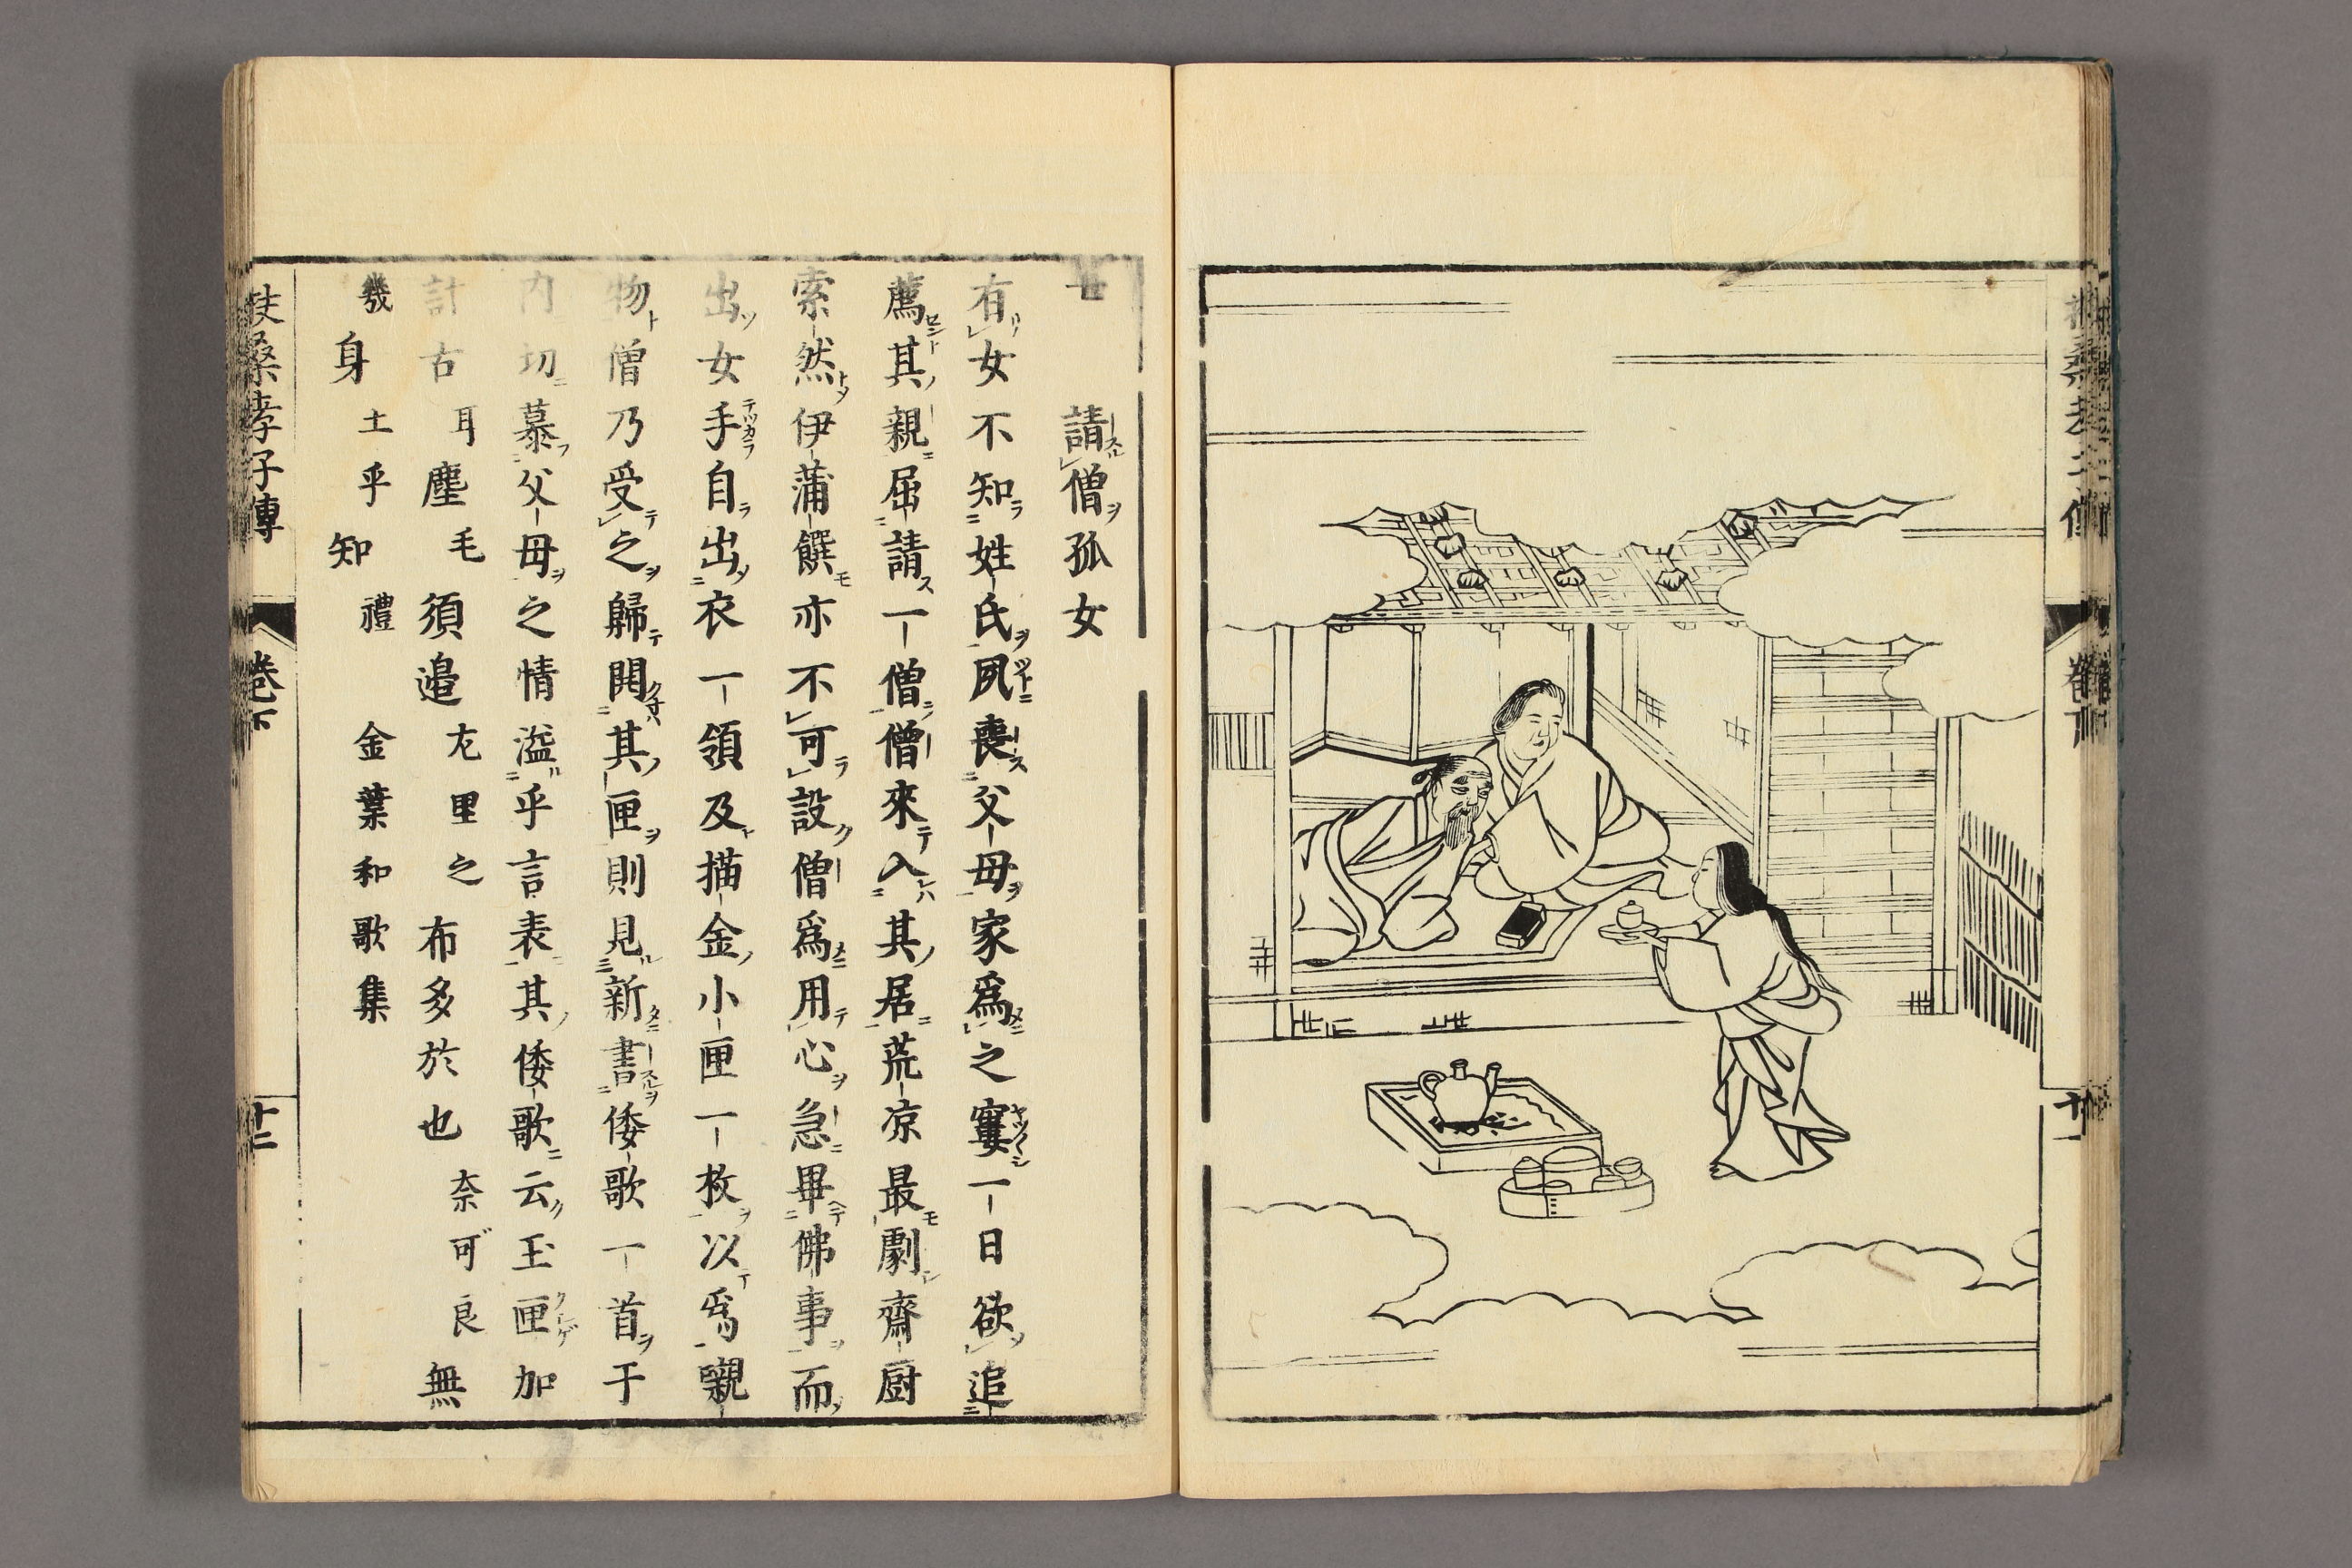 廿
請僧孤女
有女不知姓氏夙喪父母家爲之窶一日欲追
薦其親屈請一僧僧來入其居荒凉最劇齋厨
索然伊蒲饌亦不可設僧爲用心急畢佛事而
出女手自出衣一領及描金小匣一枚以爲嚫
物僧乃受之歸開其匣則見新書倭歌一首于
内切慕父母之情溢乎言表其倭歌云玉匣加
計古耳塵毛須邉尢里之布多於也奈可良無
幾身土乎知禮金葉和歌集
扶桑孝子傳
卷下
十二